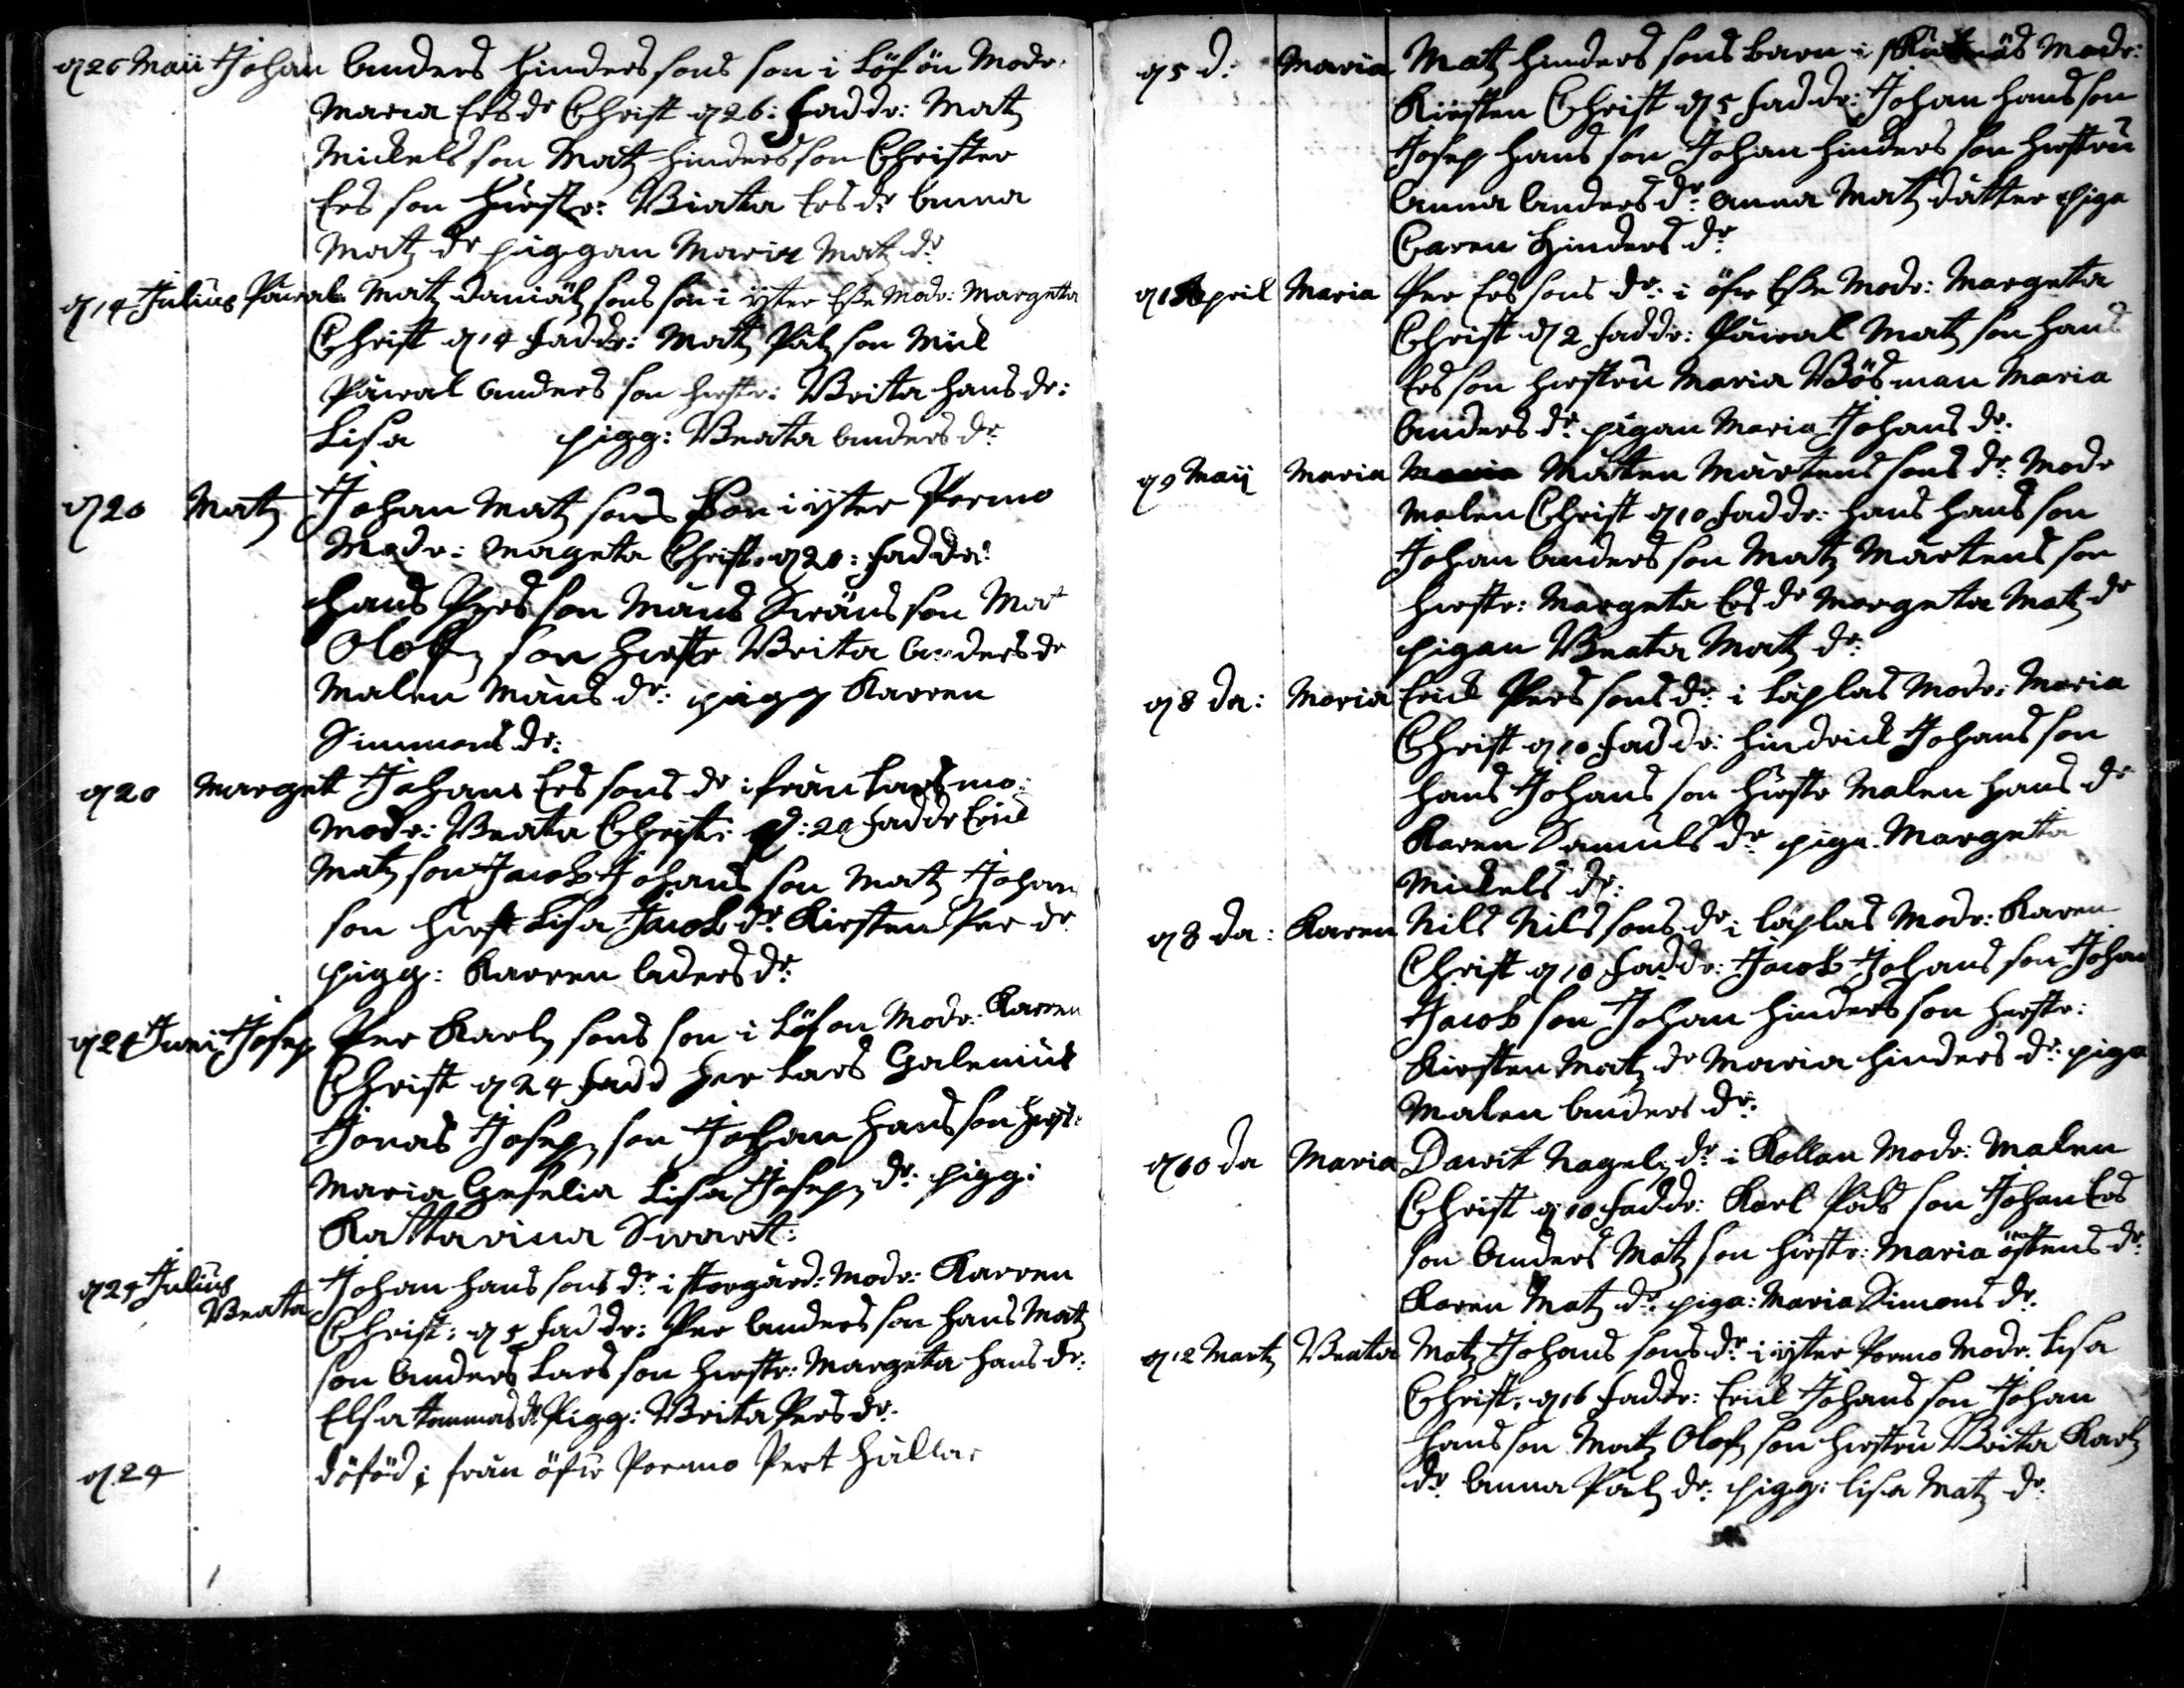 d 26 Maii Johan Anders Hinders sons son i Löfön Modr.
Maria Ersdr Christ d 26: Faddr: Matz
Mickels son Matz Hinders son Christer
Ers son hustr: Birata Ersdr Anna
Matz dr piggan Maria Matz dr
d 14 Julius Påwal Matz Daniälz sons son i ÿtter Esse Modr: Margeta
Christ d 14 Faddr: Matz Pålz son Mick
Påwal Anders son hustr: Brita Hans dr:
Lisa pigg: Beata Anders dr
d 20 Matz Johan Matz sons son i ÿtter Pormo
Modr: Mageta Christ. d 20: Faddr:
Hans Pers son Måns Swäns son Mat
Olofz son hustr Brita Anders dr
Malen Måns dr: pigg Karren
Simmons dr:
d 20 Marget Johans Ers sons dr ifrån Larsmo:
Modr: Beata Christ: d: 20 Faddr Erick
Matz son Jacob Johans son Matz Johan
son hust Lisa Jacobs dr Kirsten Per dr
pigg: Karren Aders dr:
d 24 Juni Josep Per Karlz sons son i Löfon Modr: Karren
Christ d 24 Fadd Her Lars Galenius
Jonas Josepz son Johan Hans son hust:
Maria Geselia Lisa Josepz dr: pigg:
Kattarina Swart:
d 25 Julius
Beata Johan Hans sons dr: i storgård: Modr: Karren
Christ: d 5 Faddr: Per Anders son Hans Matz
son Anders Lars son hustr: Margeta Hans dr:
Elsa Tommas dr Pigg: Brita Pers dr:
d. 24 döföd i från öfwr Pormo Pert Hälla:
d 5 d: Maria Matz Hinders sons barn i Modr:
Kirsten Christ d 5 Faddr: Johan Hans son
Josep Hans son Johan Hinders son hustru
Anna Anders dr: Anna Matz dåtter piga
Caren Hinders dr
d 1 April Maria Per Ers sons dr: i öfwr Esse Modr: Margeta
Christ d 2 Faddr: Påwal Matz son Hans
Ers son hustru Maria Bösman Maria
Anders dr pigan Maria Johans dr:
d 9 Maij Maria Mårten Mårtens sons dr: Modr
Malen Christ d 10 Faddr: Hans Hans son
Johan Anders son Matz Mårtens son
hustr: Margeta Ers dr Margeta Matz dr
pigan Beata Matz dr:
d 8 da: Maria Erick Pers sons dr: i Låplas Modr: Maria
Christ d 10 Faddr: Hindrick Johans son
Hans Johans son hustr Malen Hans dr
Karen Samuls dr piga Margeta
Mickels dr:
d 8 da: Karen Nils Nils sons dr i låplas Modr: Karen
Christ d 10 Faddr: Jacob Johans son Johan
Jacob son Johan Hinders son hustr:
Kirsten Matz dr Maria Hinders dr: piga
Malen Anders dr:
d 10 da Maria Dawit Nagelz dr: i Kollan Modr: Malen
Christ d 10 Faddr: Karl Påls son Johan Ers
son Anders Matz son hustr: Maria östens dr:
Karen Matz dr: piga: Maria Simons dr.
d 12 Martz Beata Matz Johans sons dr: i ÿtter Pormo Modr. Lisa
Christ. d 16 Faddr: Erick Johans son Johan
Hans son Matz Olofz son hustru Brita Karlz
dr Anna Pålz dr: pigg: Lisa Matz dr: